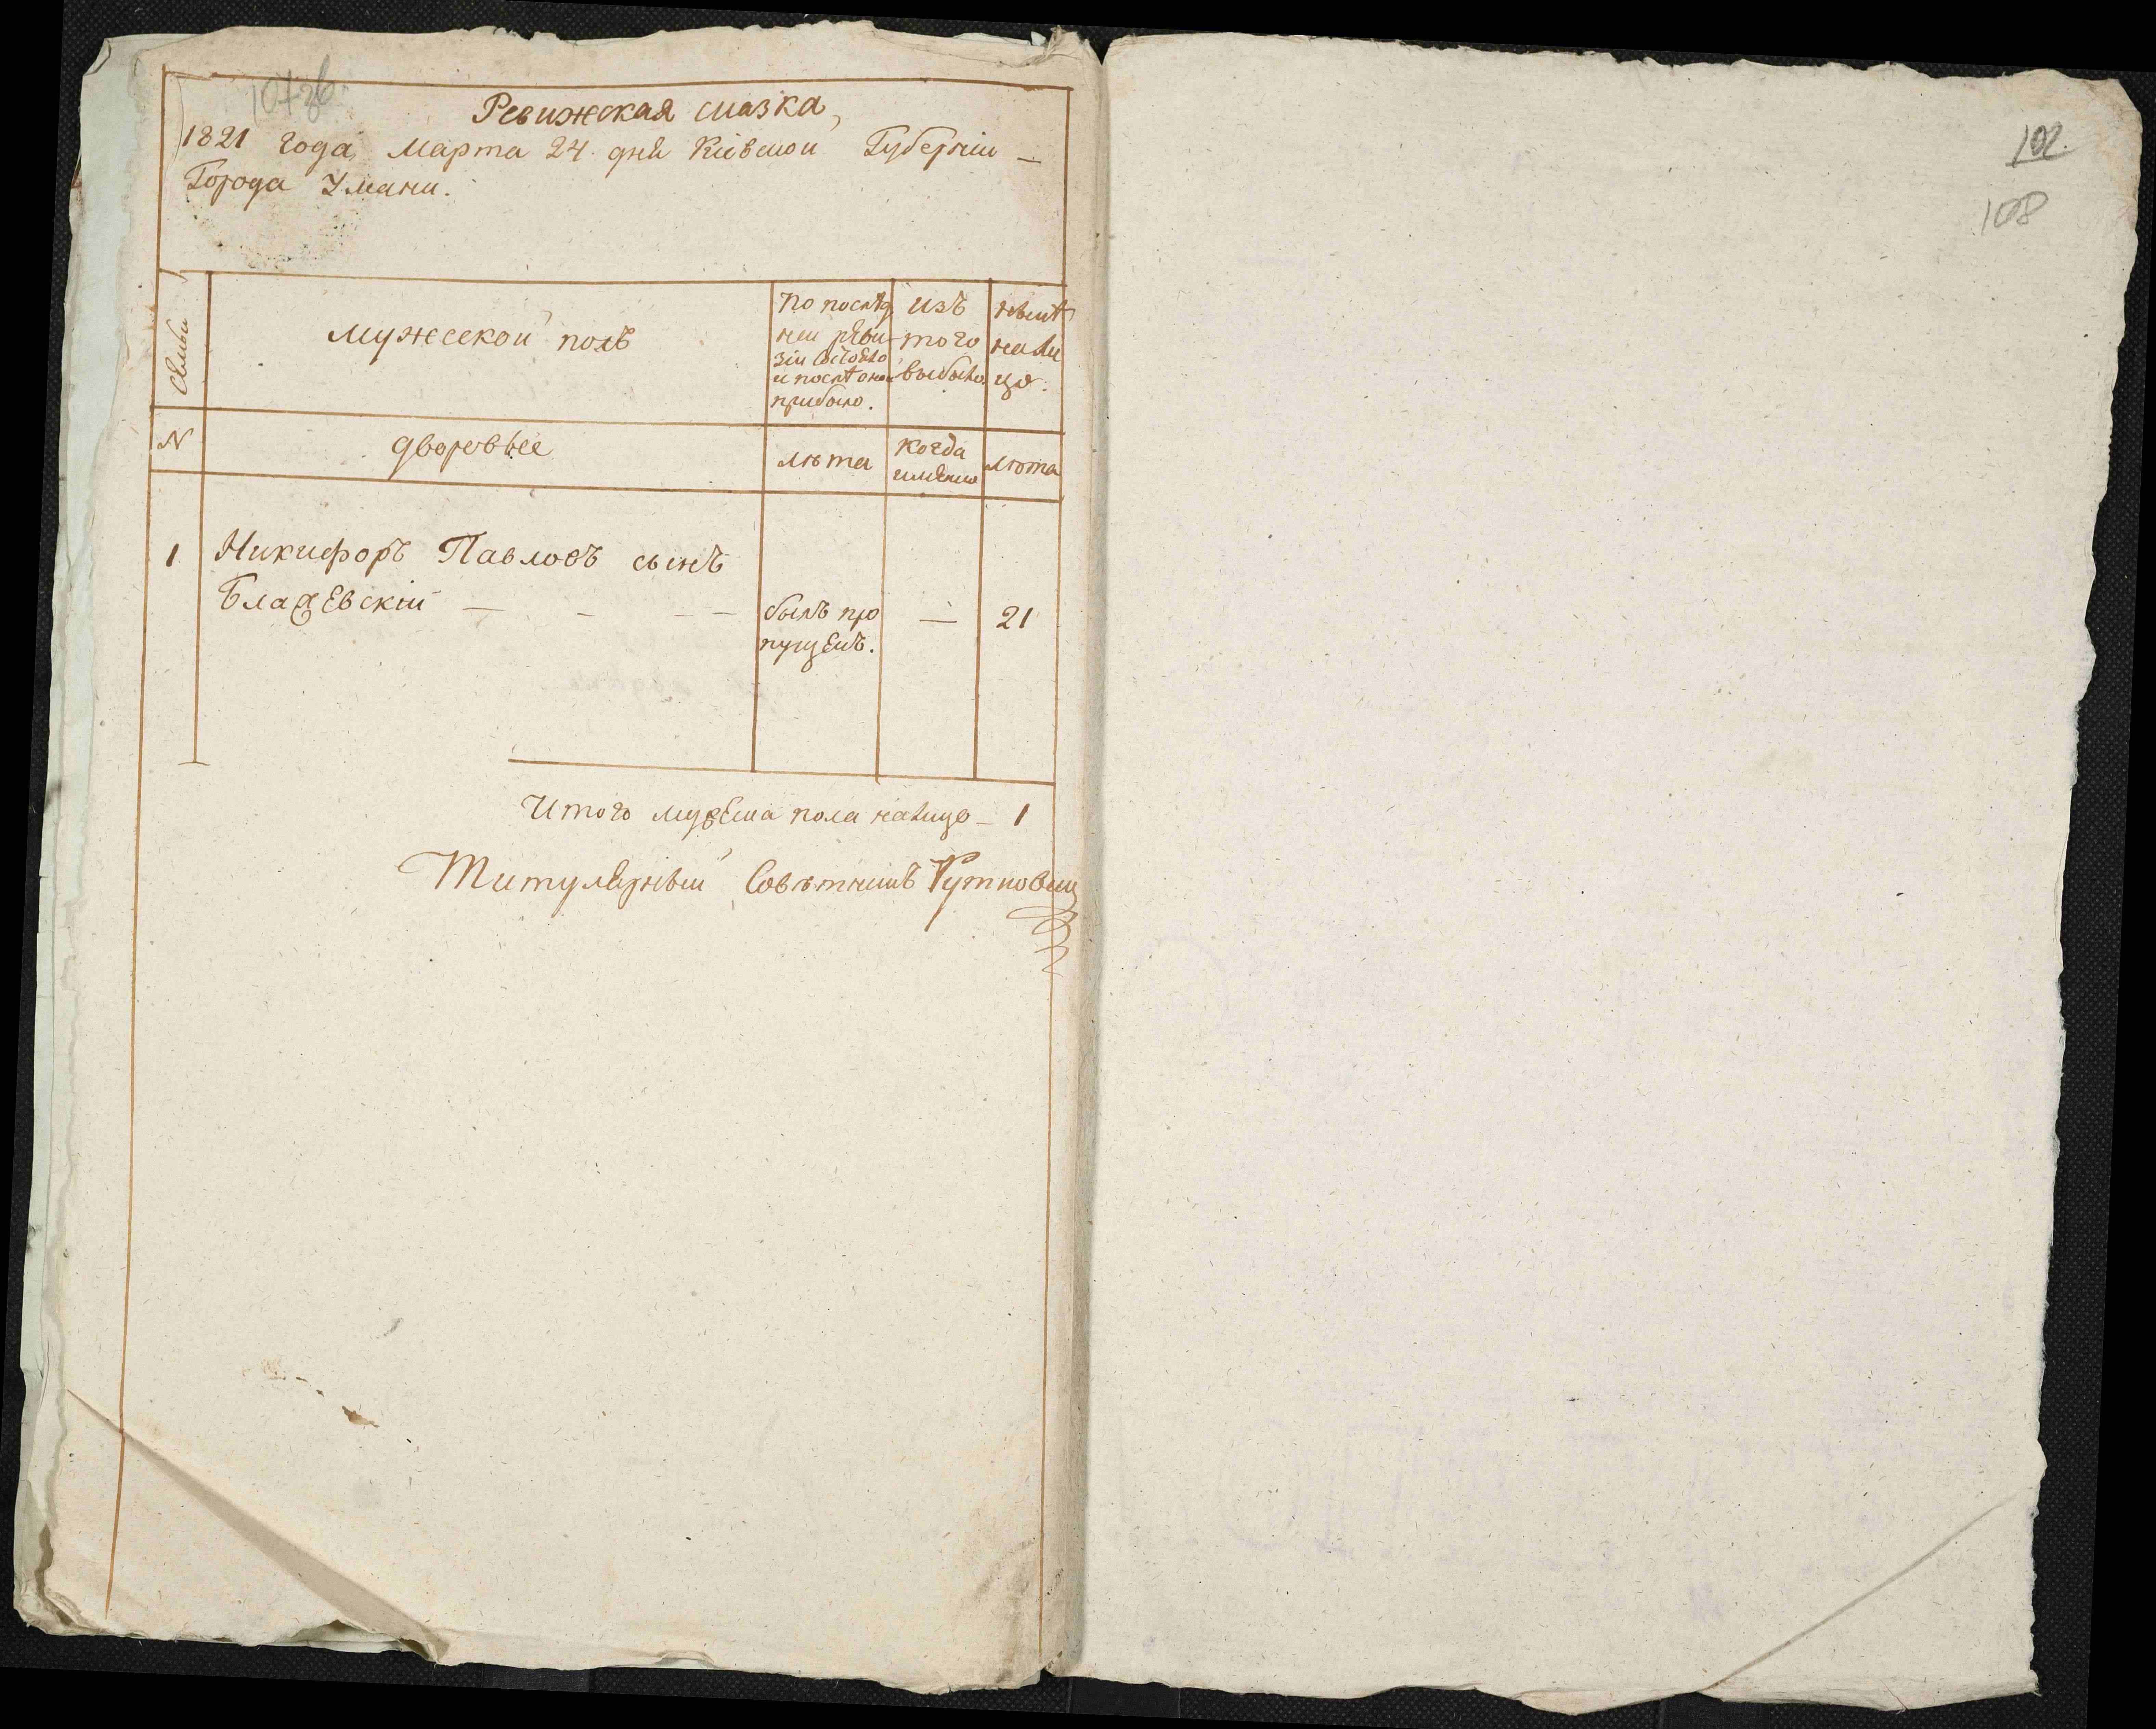 107 зв.
Ревижская сказка,
1821 года Марта 24 дня Кіевской Губерніи —
Города Умани.
Семьи
мужеской полъ
По послѣд
ней реви-
зіи состояло
и послѣ оной
прибыло.
изъ
того
выбыло.
нынѣ
нали
цо.
N
дворовые
лѣта
когда
имянно
лѣта
1 Никифоръ Павловъ сынъ
Блажевскій — — — — былъ про — 21
пущенъ.
Итого мужеска пола налицо — 1
Титулярный Совѣтникъ
102.
108